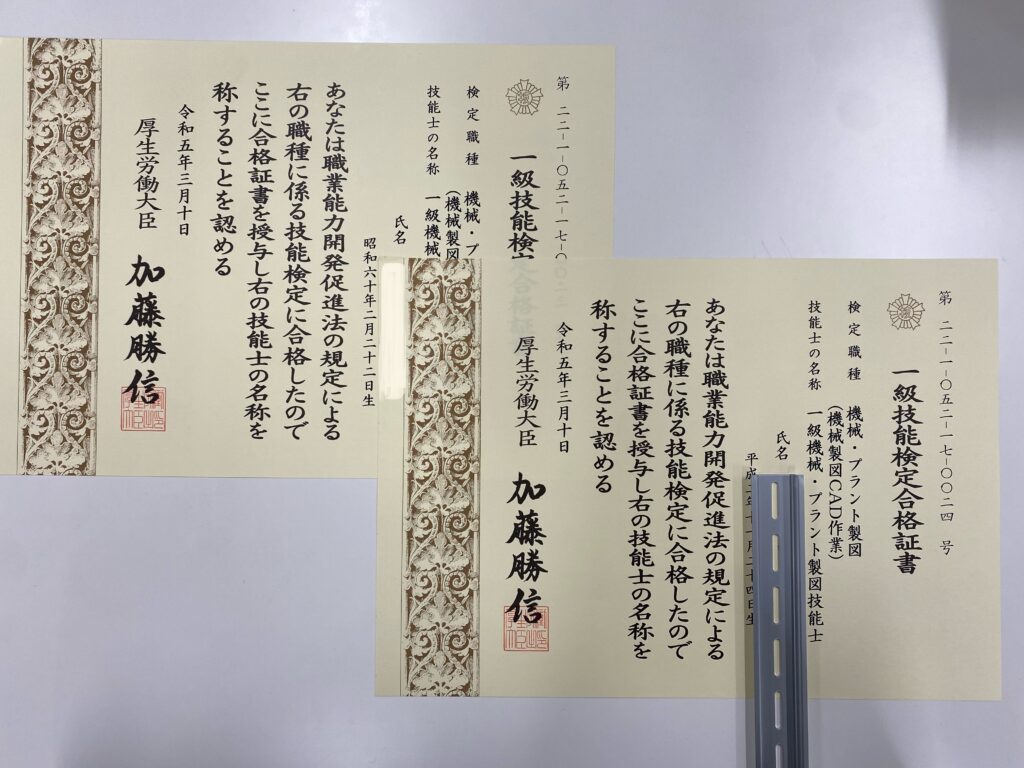 第 二二-一-〇五二-一七-〇〇二四 号
一級技能検定合格証書
検定職種 機械・プラント製図
(機械製図CAD作業)
技能士の名称 一級機械・プラント製図技能士
氏名
平成二年十一月二十四日生
あなたは職業能力開発促進法の規定による
右の職種に係る技能検定に合格したので
ここに合格証書を授与し右の技能士の名称を
称することを認める
令和五年三月十日
厚生労働大臣 加藤勝信
第 二二-一-〇五二-一七-〇〇二
一級技能検定合格証
検定職種 機械・プ
(機械製図
技能士の名称 一級機械
氏名
昭和六十年二月二十二日生
あなたは職業能力開発促進法の規定による
右の職種に係る技能検定に合格したので
ここに合格証書を授与し右の技能士の名称を
称することを認める
令和五年三月十日
厚生労働大臣 加藤勝信